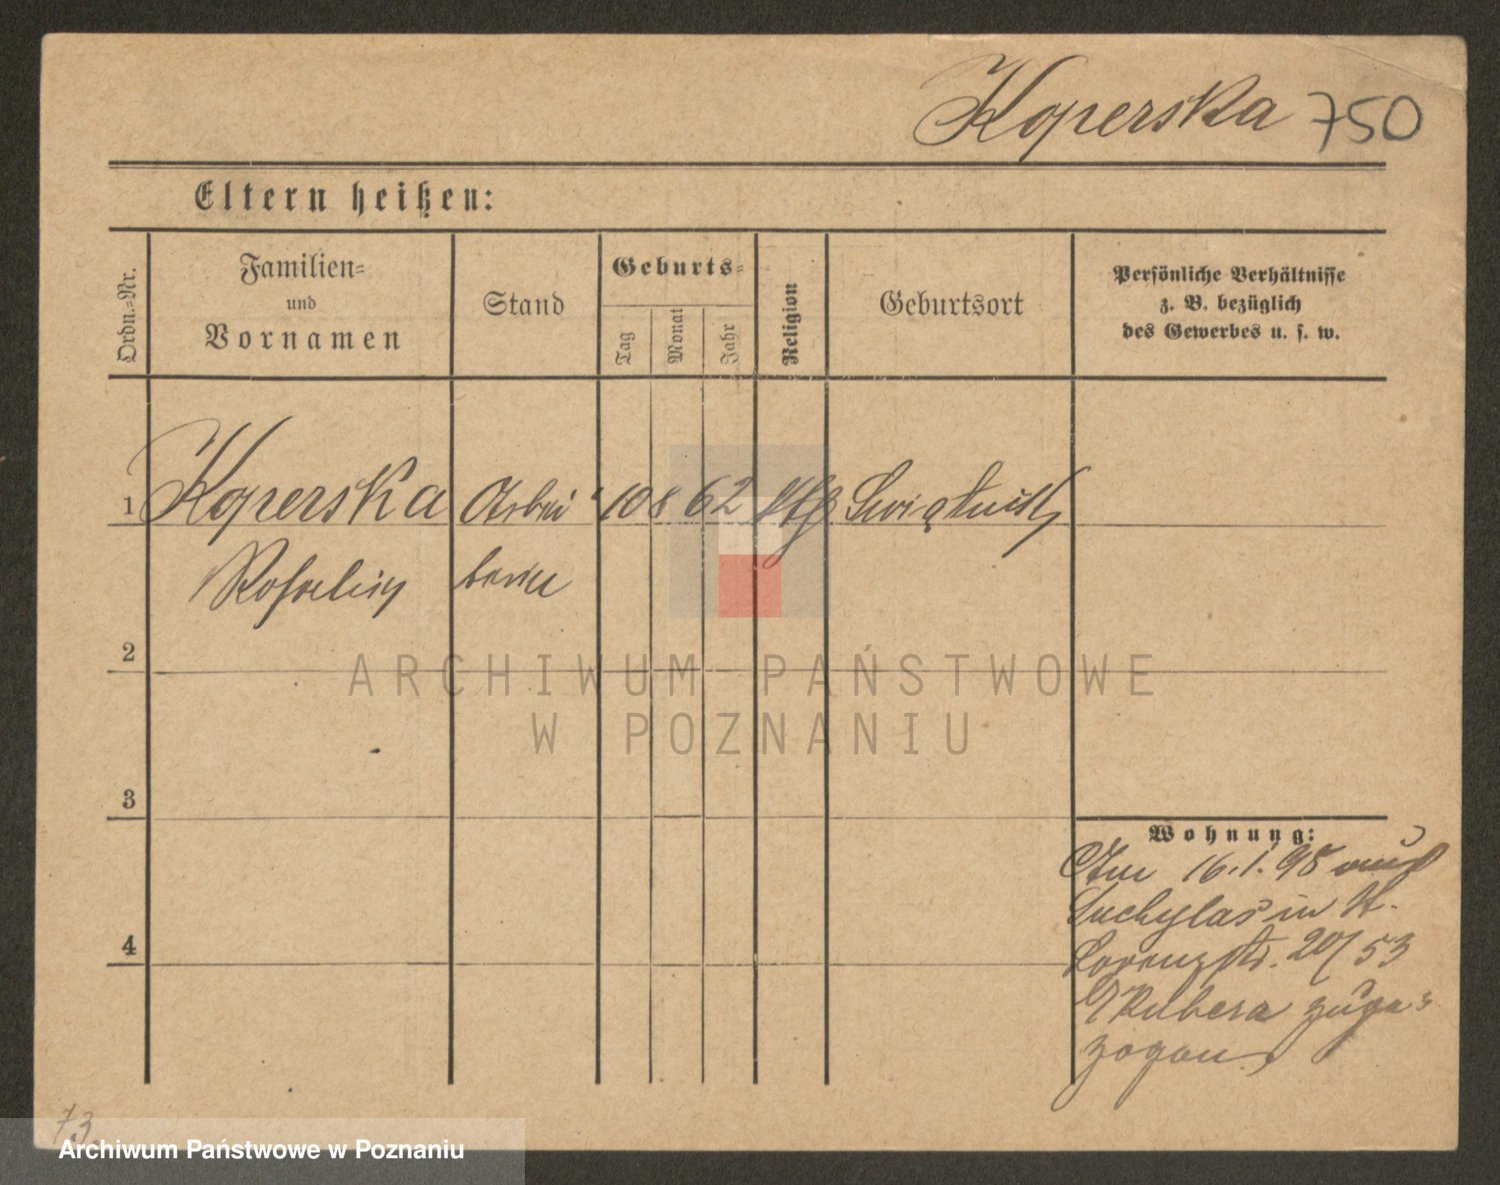 Koperska 750
Eltern heißen:
Ordn.-Nr.
Familien-
und
Vornamen
Stand
Geburts-
Tag
Monat
Jahr
Religion
Geburtsort
Persönliche Verhältnisse
z. B. bezüglich
des Gewerbes u. s. w.
1 Koperska Arbei- 10 8 62 kth
Rosalia
2
3
4
Wohnung:
Am 16.1.98 aus
Suchylas in
Lorenzstr. 20/53
zuge-
zogen.
73.
ARCHIWUM PAŃSTWOWE
W POZNANIU
Archiwum Państwowe w Poznaniu